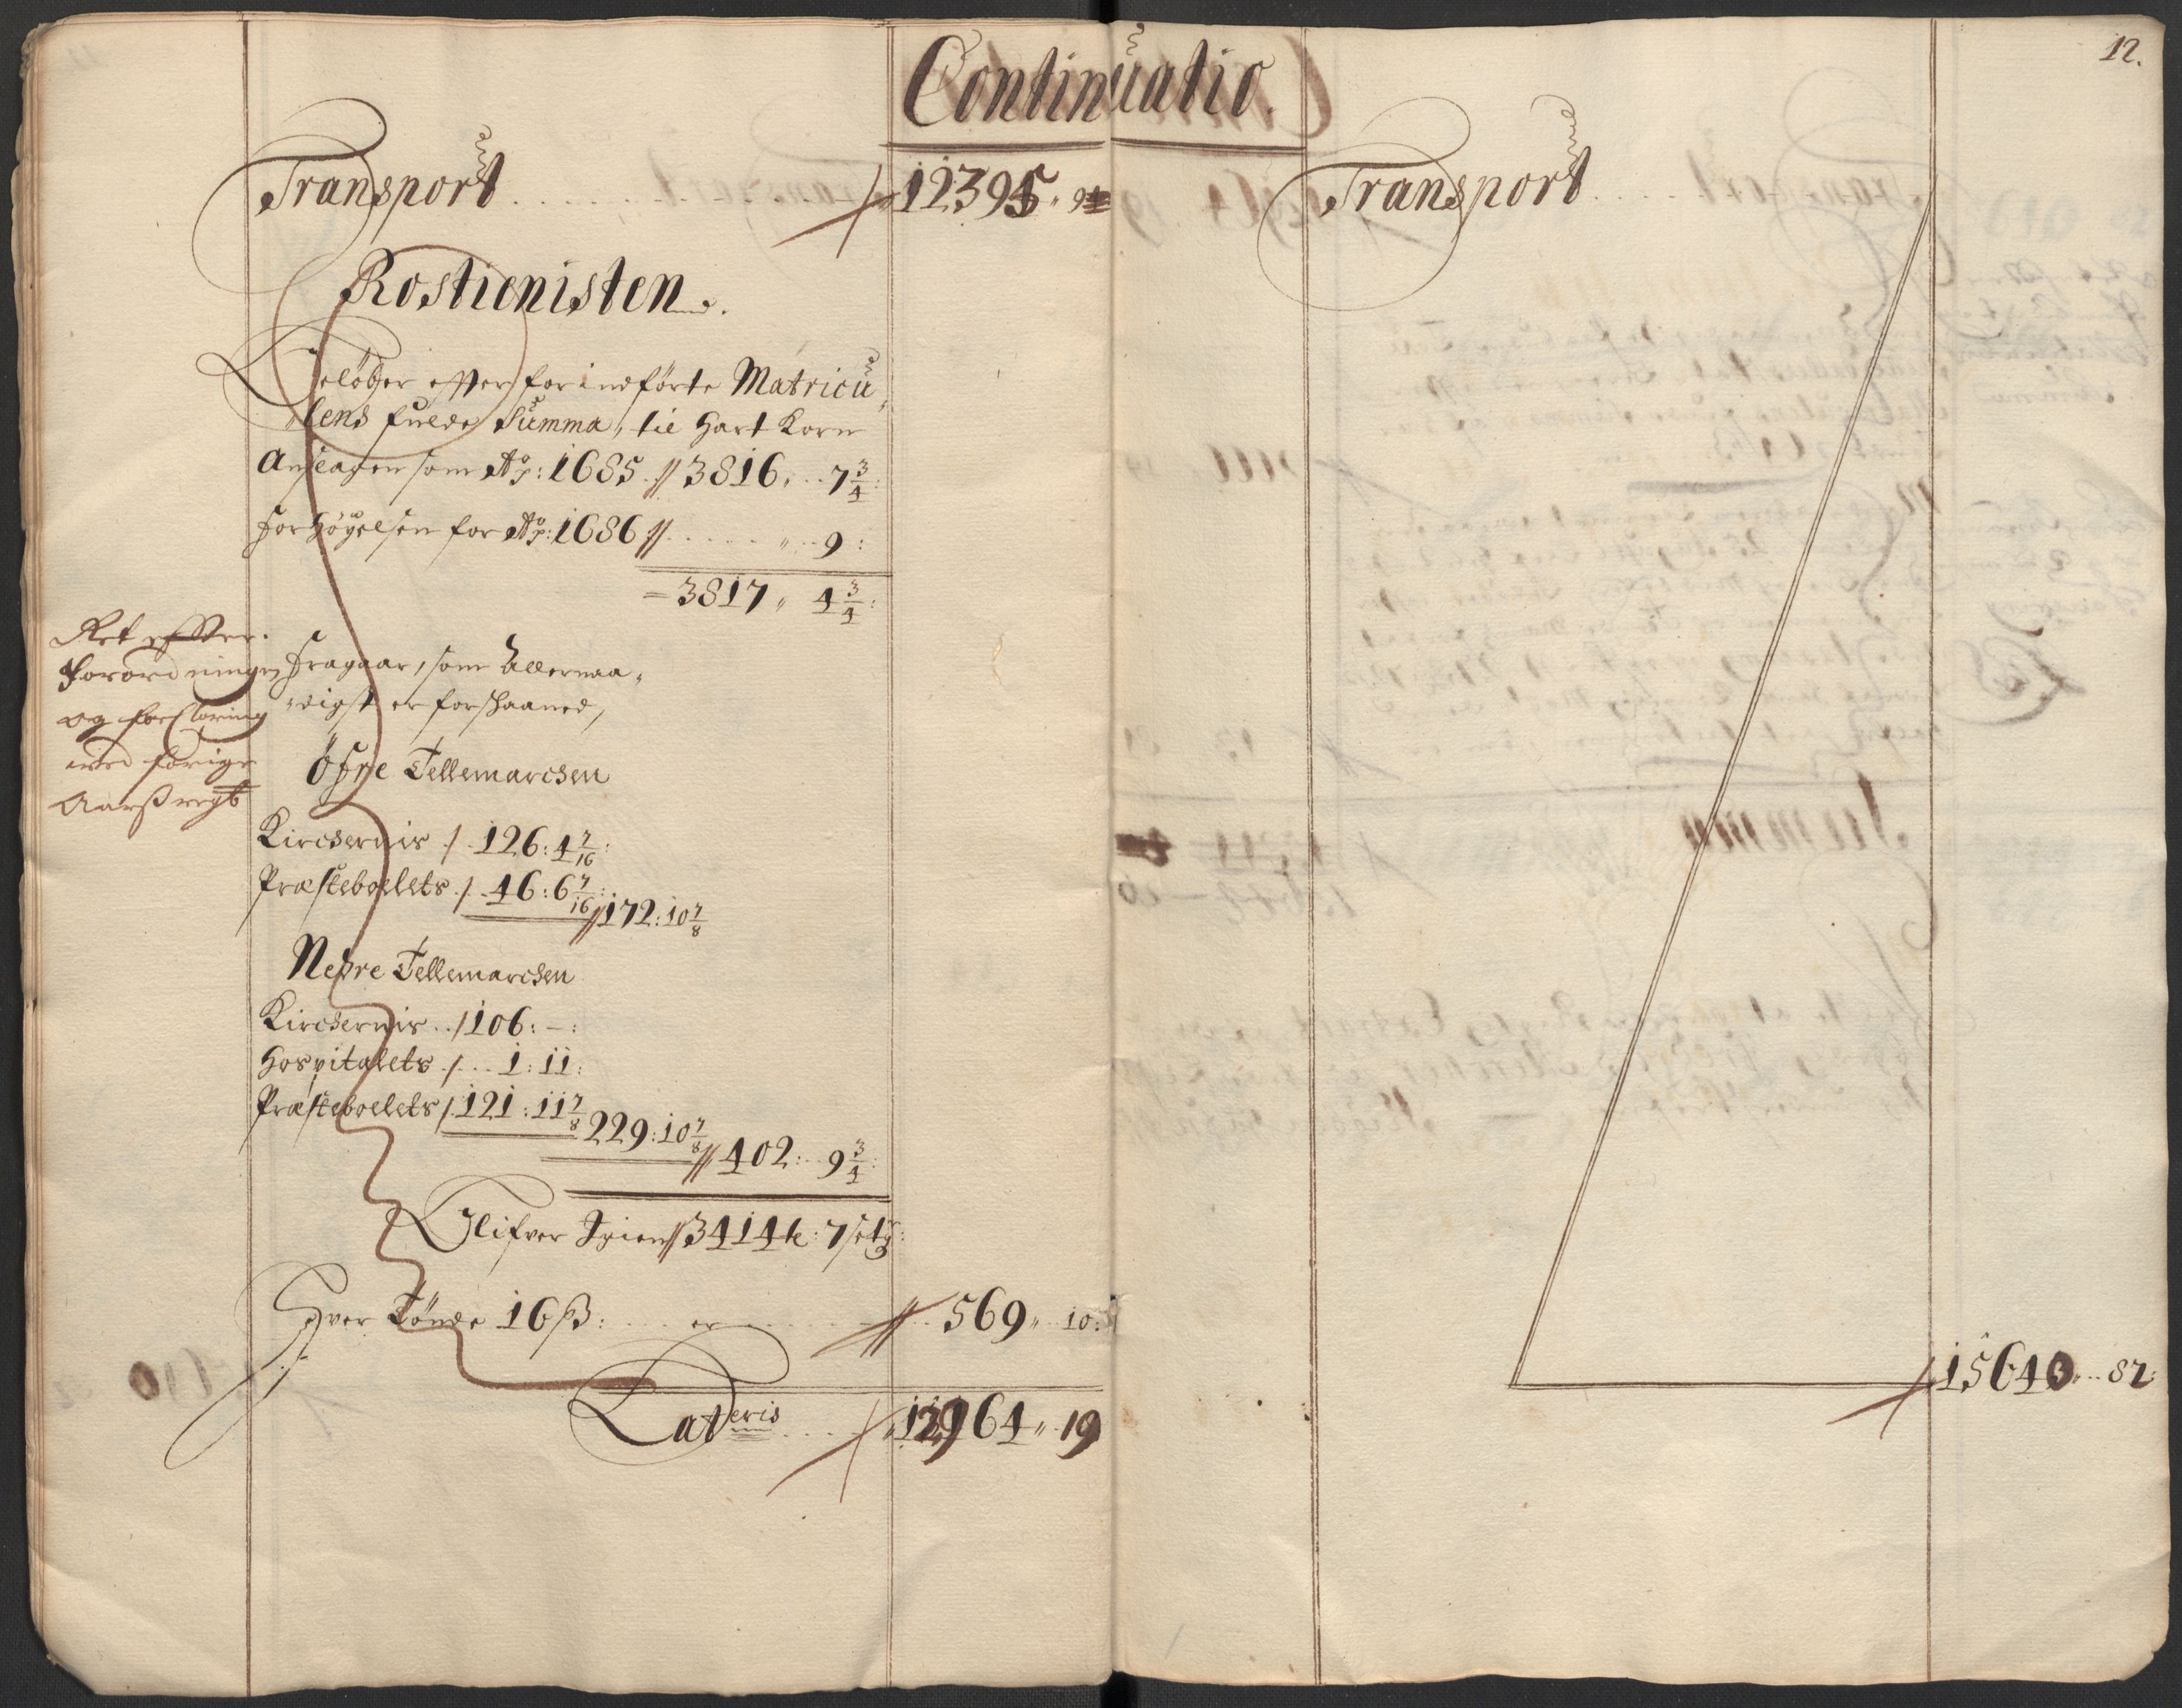 12.
Continuatio.
Transport . . . . . 12395 " 9
Rostienisten.
Beløber efter forindførte Matricu
"lens fulde Summa, til Hart Korn
Anslagen som Ao: 1685 // 3816 " 7 3/4:
Forhöyelsen for Ao: 1686 // . . . . " 9:
3817 " 4 3/4:
Ret efter
Forordningen
og forclaring
med forige
Aarß regsk
Fragaar, som allernaa,
"digst er forskaaned,
Öfre Tellemarchen
Kirchernis / 126: 4 7/16:
Præsteboelets / 46: 6 7/16: // 172: 10 7/8
Nedre Tellemarchen
Kirchernis . . / 106: –:
Hospitalets / . . . 1: 11:
Præsteboelets / 121: 11 7/8 229: 10 7/8 // 402: 9 3/4:
Blifver Igien // 3414 te: 7 setg:
Hver Tönde 16 ß: . . . er . . . . // 569 " 10:
Lateris . . . . 12964 " 19
Transport . . . . .
15640 " 82: